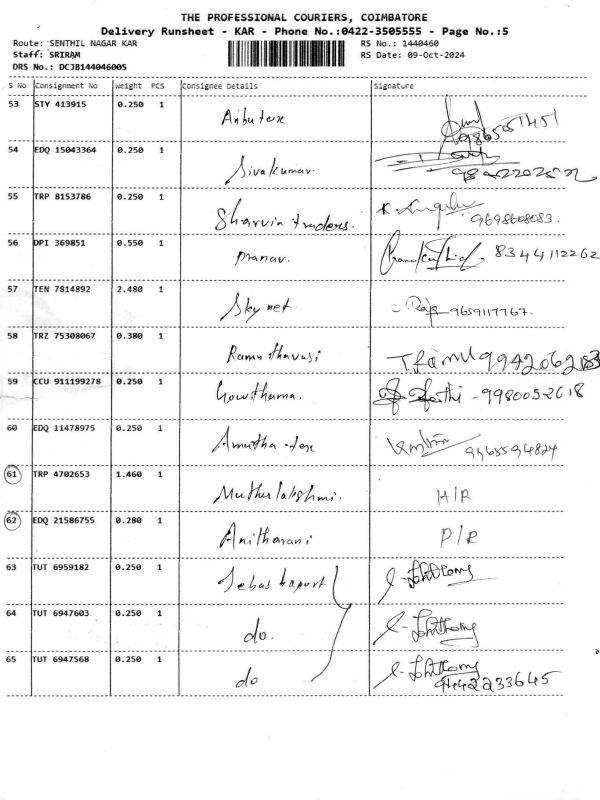 THE PROFESSIONAL COURIERS, COIMBATORE
Delivery Runsheet - KAR - Phone No.:0422-3505555 - Page No.:5
Route: SENTHIL NAGAR KAR
RS No.: 1440460
Staff: SRIRAM
RS Date: 09-Oct-2024
DRS No.: DCJB144046005
S No Consignment No Weight PCS Consignee Details Signature
53 STY 413915 0.250 1 Anbu tex
54 EDQ 15043364 0.250 1 Sivakumar.
55 TRP 8153786 0.250 1 Sharvin traders. 9698608083.
56 DPI 369851 0.550 1 pranav. 8344112262
57 TEN 7814892 2.480 1 Sky net. Raja 9659117767.
58 TRZ 75308067 0.380 1 Ramu thavasi
59 CCU 911199278 0.250 1 Gowthama. 9980052618
60 EDQ 11478975 0.250 1 Amutha tex
61 TRP 4702653 1.460 1 Muthulakshmi. H/R
62 EDQ 21586755 0.280 1 Anitharani P/R
63 TUT 6959182 0.250 1
64 TUT 6947603 0.250 1 do.
65 TUT 6947568 0.250 1 do
9442233645